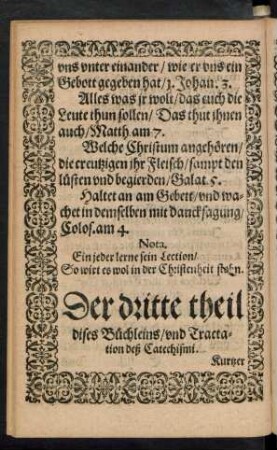 vns vnter einander / wie er vns ein
Gebott gegeben hat / 1. Johan. 3.
Alles was jr wolt / das euch die
Leute thun sollen / Das thut ihnen
auch / Matth am 7.
Welche Christum angehören /
die creutzigen ihr Fleisch / sampt den
lüsten vnd begierden / Galat. 5.
Haltet an am Gebett / vnd wa-
chet in demselben mit dancksagung /
Colos. am 4.
Nota.
Ein jeder lerne sein Lection /
So wirt es wol in der Christenheit stehn.
Der dritte theil
dises Büchleins / vnd Tracta-
tion deß Catechismi.
Kurtzer